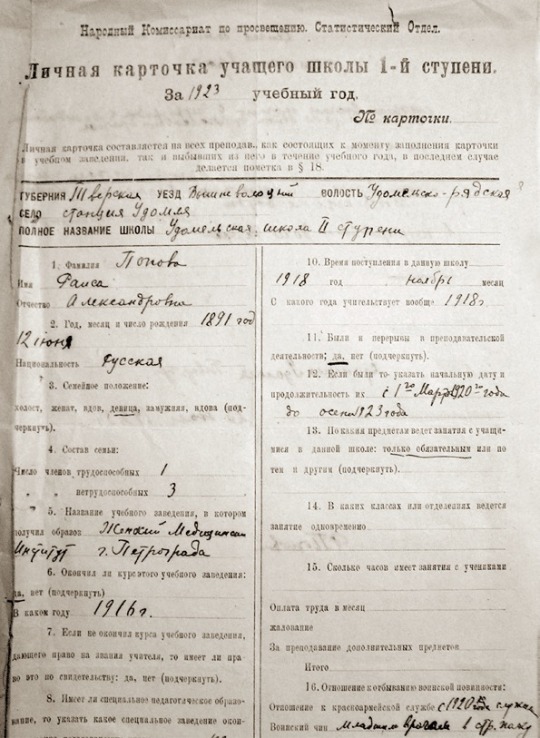 Народный Комиссариат по просвещению. Статистический Отдел.
Личная карточка учащего школы 1-й ступени.
За 1923 учебный год.
№ карточки.
Личная карточка составляется на всех преподав., как состоящих к моменту заполнения карточки
в учебном заведении, так и выбывших из него в течение учебного года, в последнем случае
делается пометка в § 18.
ГУБЕРНИЯ Тверская УЕЗД Вышневолоцкий ВОЛОСТЬ Удомельско-рядская
СЕЛО станция Удомля
ПОЛНОЕ НАЗВАНИЕ ШКОЛЫ Удомельская школа II ступени
1. Фамилия Попова
Имя Раиса
Отчество Александровна
2. Год, месяц и число рождения 1891 год
12 июня
Национальность русская
3. Семейное положение:
холост, женат, вдов, девица, замужняя, вдова (под-
черкнуть).
4. Состав семьи:
Число членов трудоспособных 1
" " нетрудоспособных 3
5. Название учебного заведения, в котором
получил образов. Женский Медицинский
Институт г. Петрограда
6. Окончил ли курс этого учебного заведения:
да, нет (подчеркнуть)
В каком году 1916 г.
7. Если не окончил курса учебного заведения,
дающего право на звания учителя, то имеет ли пра-
во это по свидетельству: да, нет (подчеркнуть).
8. Имеет ли специальное педагогическое образо-
вание, то указать какое специальное заведение окон-
10. Время поступления в данную школу
1918 год ноябрь месяц
С какого года учительствует вообще 1918 г.
11. Были и перерывы в преподавательской
деятельности: да, нет (подчеркнуть).
12. Если были то указать начальную дату и
продолжительность их с 1го Марта 1920го года
до осени 1923 года
13. По каким предметам ведет занятия с учащи-
мися в данной школе: только обязательным или по
тем и другим (подчеркнуть).
14. В каких классах или отделениях ведется
занятие одновременно
15. Сколько часов имеет занятия с учениками
Оплата труда в месяц
жалование
За преподавание дополнительных предметов
Итого
16. Отношение к отбыванию воинской повинности:
Отношение к красноармейской службе с 1920 года служил
Воинский чин Младшим врачом в стр. полку